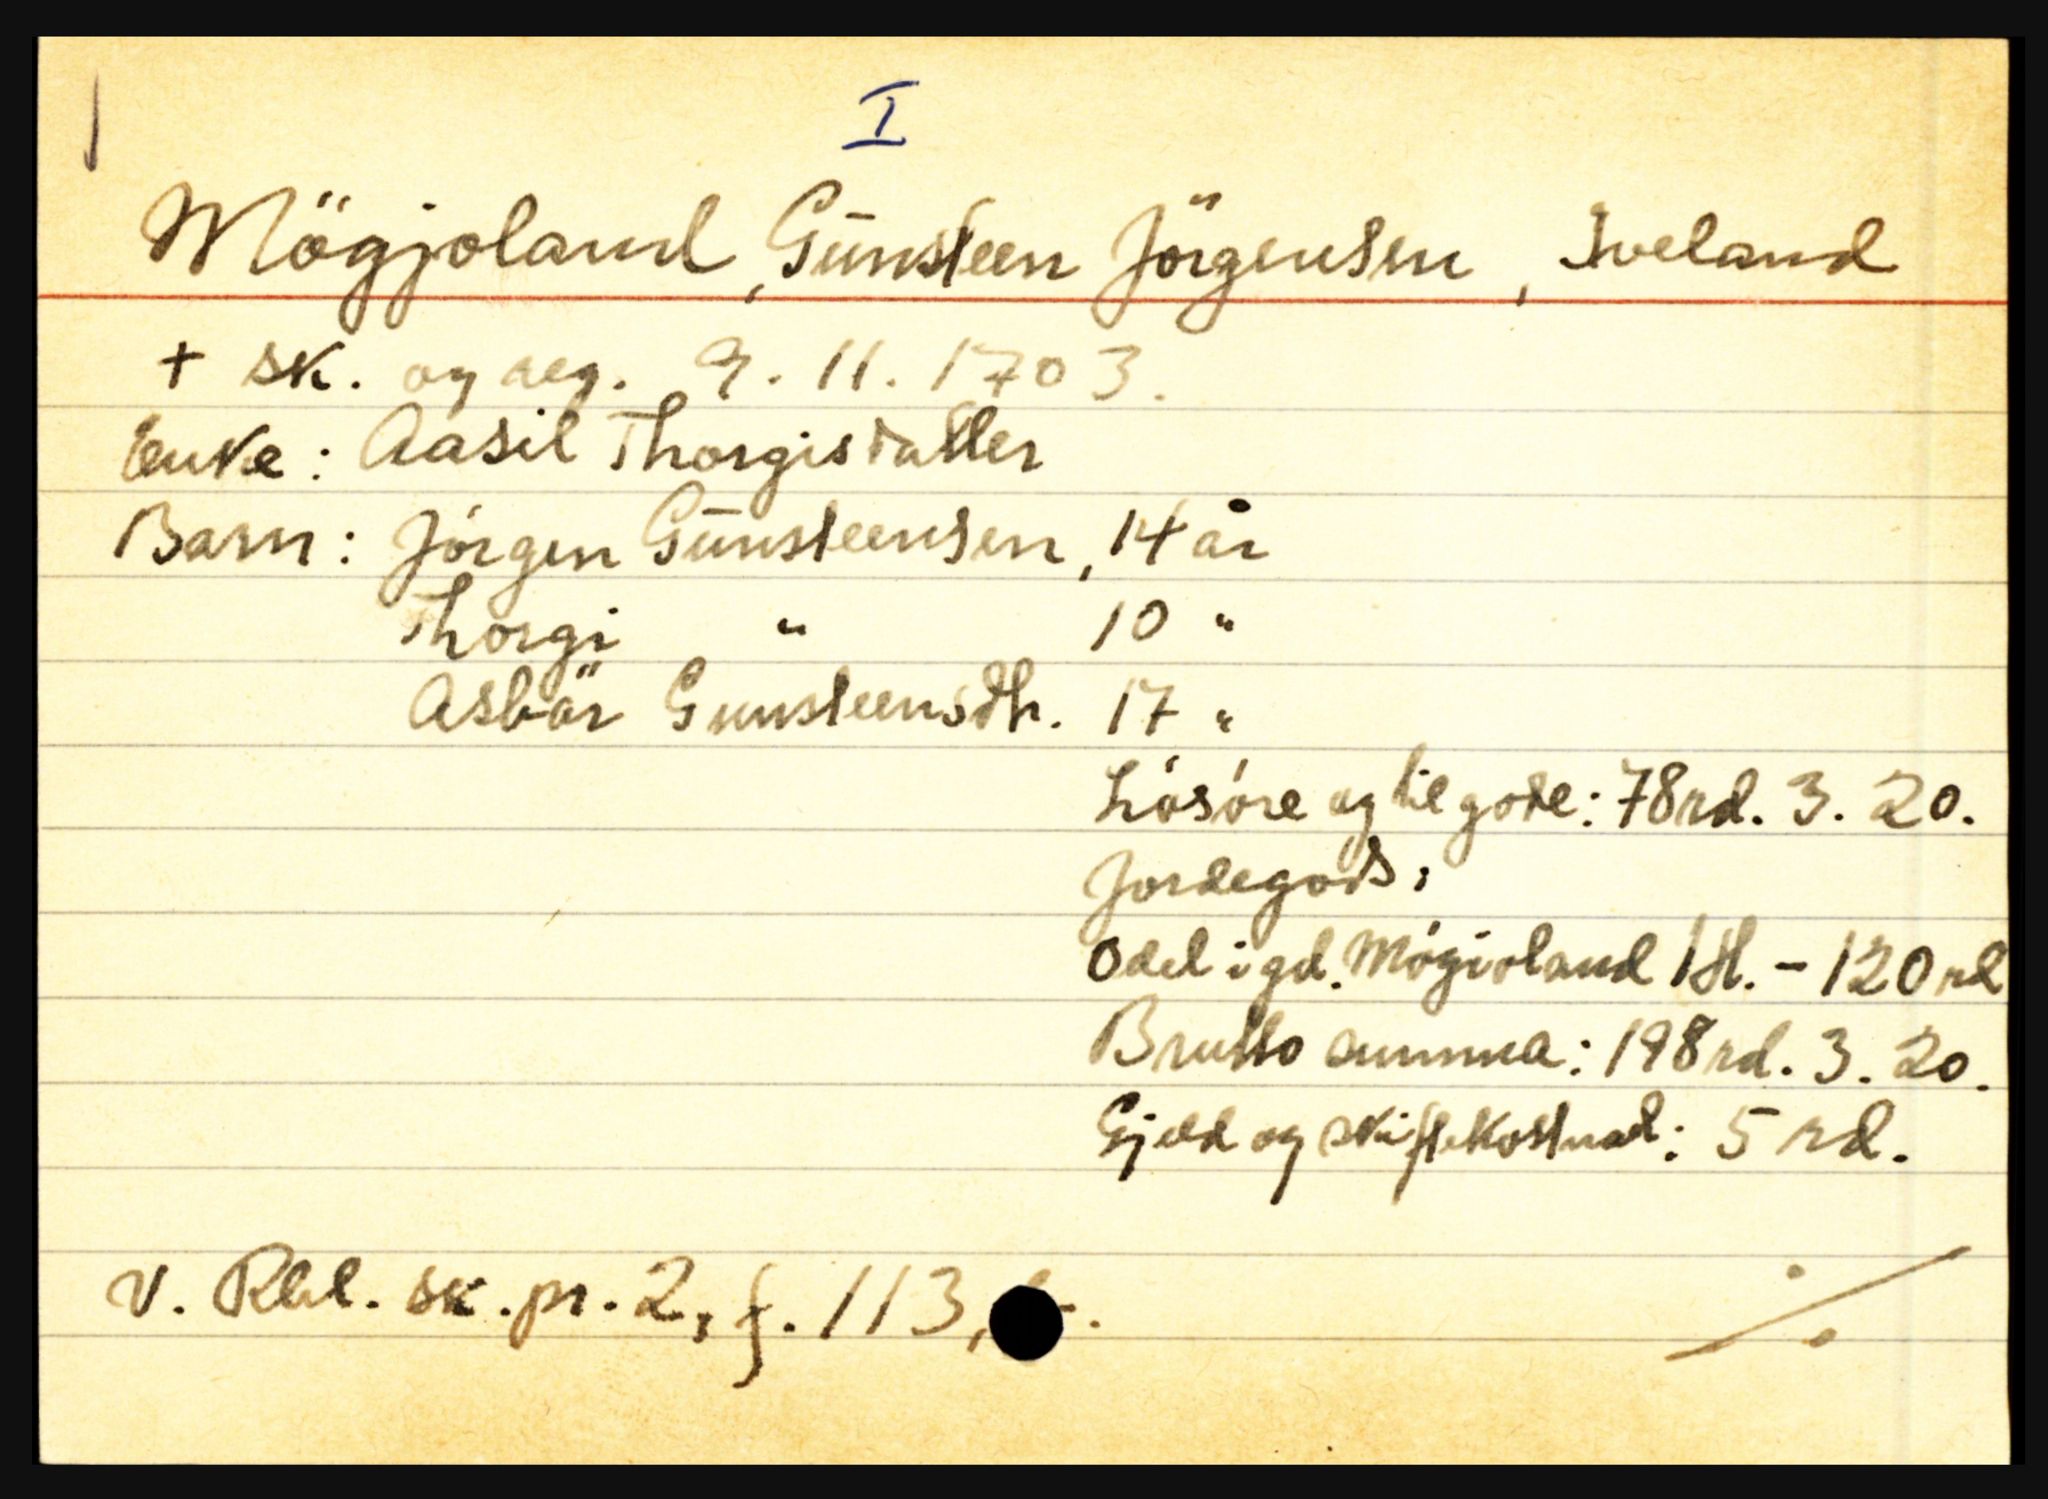 I
Mögjoland, Gūnsteen Jörgensen, Iveland
+ sk. og reg. 9. 11. 1703.
Enke: Aasil Thorgisdatter
Barn: Jörgen Gūnsteensen, 14 år
Thorgi " 10 "
Asbär Gunsteensdtr. 17 "
Lösöre og tilgode: 78 rd. 3. 20.
Jordegods:
Odel i gd. Mögioland 1 H. - 120 rd
Brutto summa: 198 rd. 3. 20.
Gjeld og skiftekostnad: 5 rd.
V. Rbl. sk. pr. 2, f. 113,